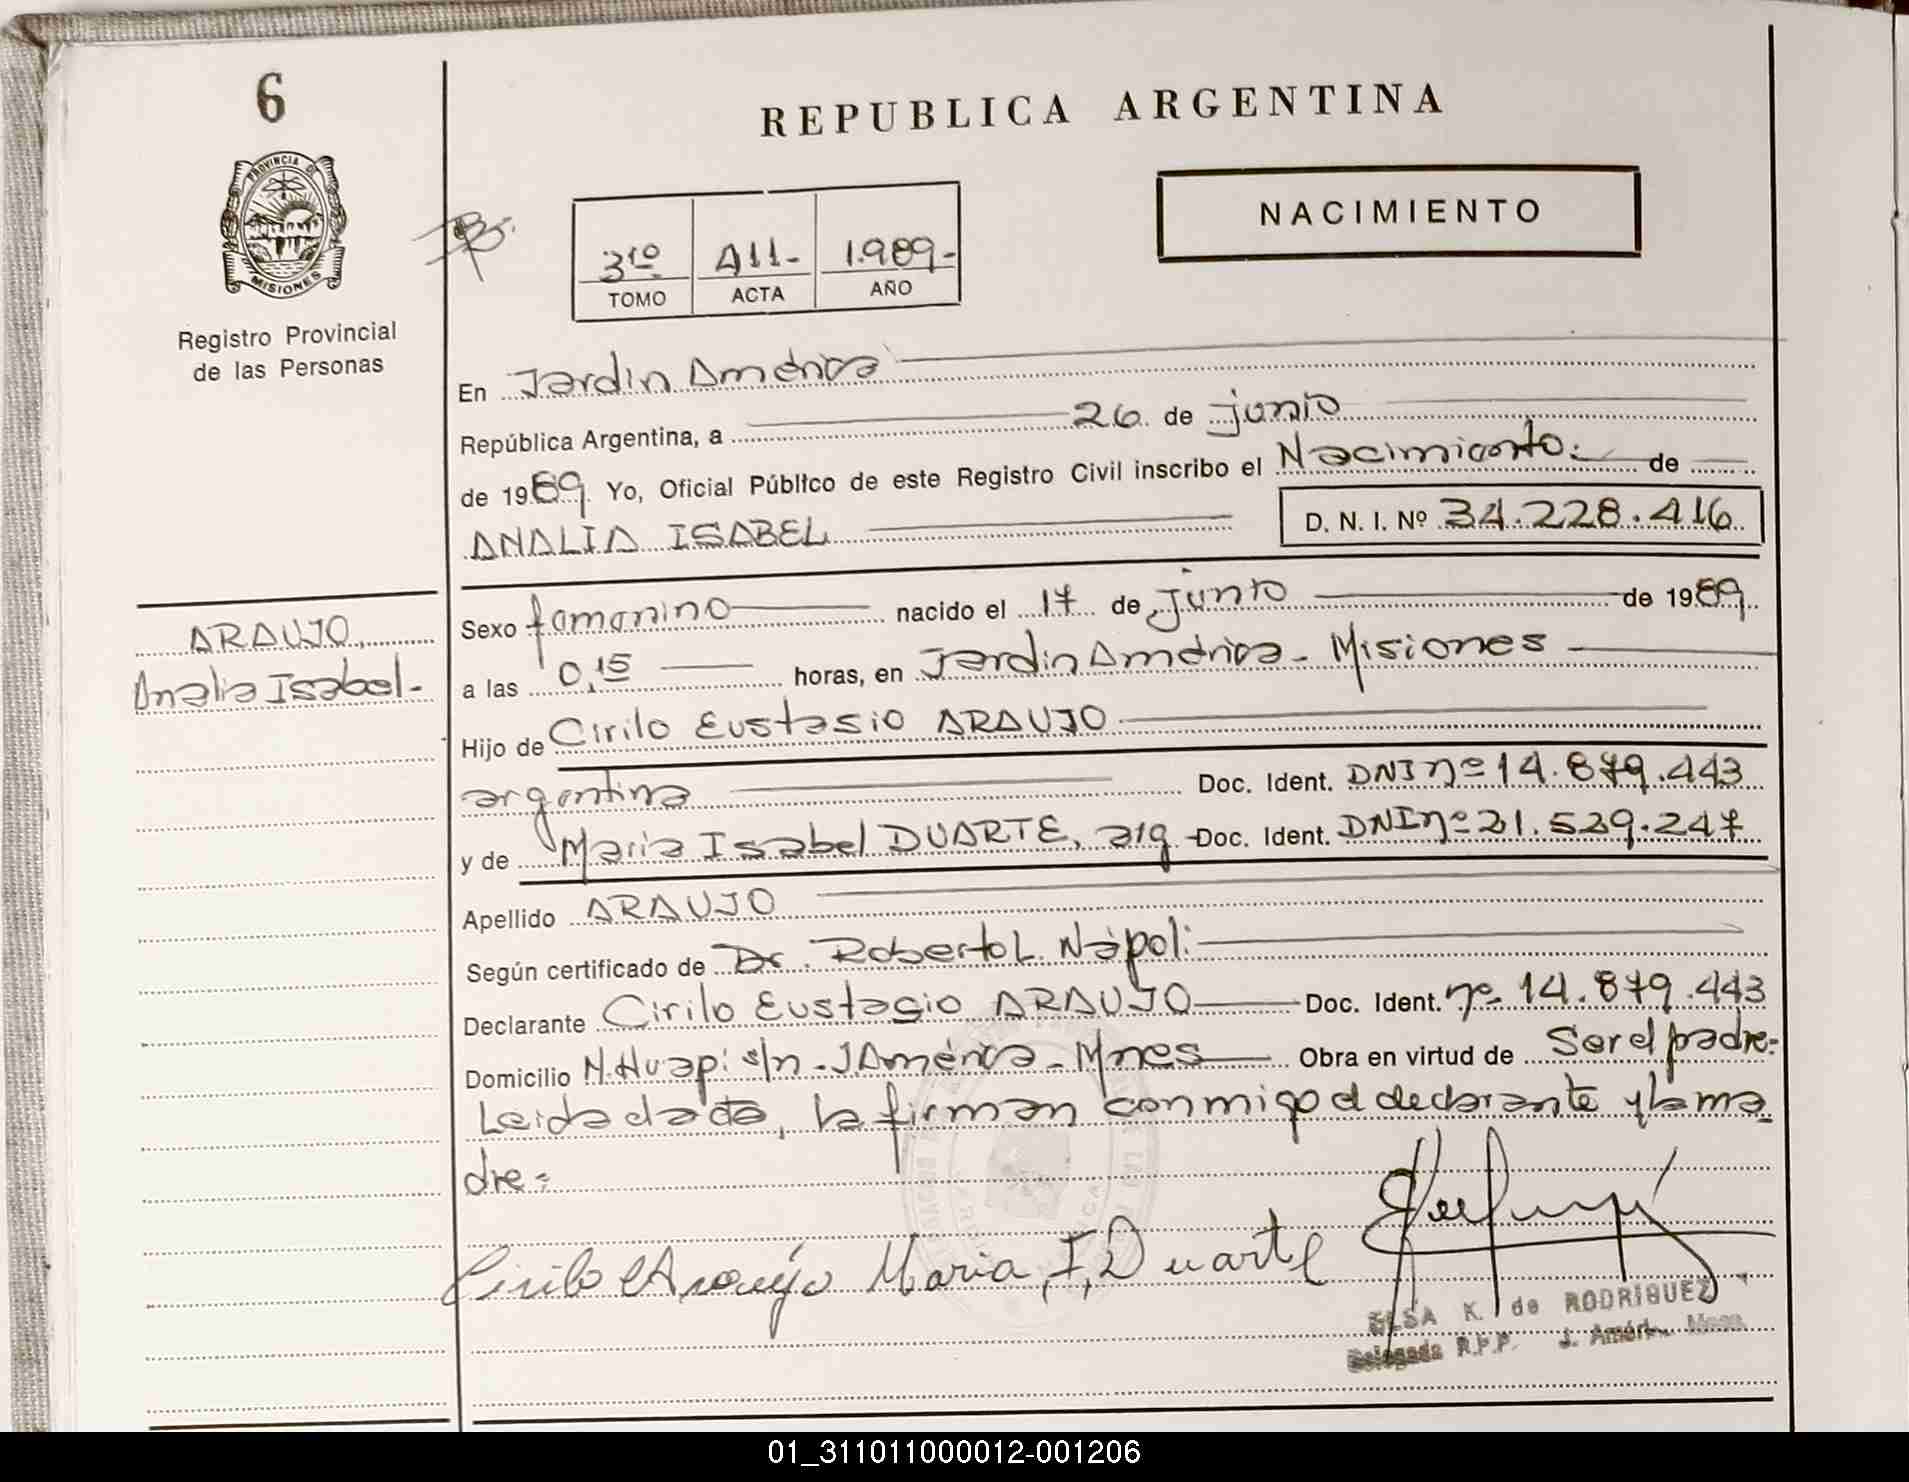 6
REPUBLICA ARGENTINA
PROVINCIA DE
MISIONES
NACIMIENTO
3ro 411- 1.989-
TOMO ACTA AÑO
Registro Provincial
de las Personas
En Jardín América
República Argentina, a 26 de junio
de 1989 Yo, Oficial Público de este Registro Civil inscribo el Nacimiento.- de
ANALIA ISABEL D. N. I. Nº 34.228.416
ARAUJO,
Analia Isabel-
Sexo femenino nacido el 17 de junio de 1989
a las 0,15 horas, en Jardín América - Misiones
Hijo de Cirilo Eustasio ARAUJO
argentina Doc. Ident. DNI nº 14.879.443
y de María Isabel DUARTE, arg - Doc. Ident. DNI nº 21.529.247
Apellido ARAUJO
Según certificado de Dr. Roberto L. Nápoli
Declarante Cirilo Eustasio ARAUJO Doc. Ident. nº 14.879.443
Domicilio N. Huapi s/n - J América - Mnes Obra en virtud de Ser el padre-
Leida el acta, la firman conmigo el declarante y la ma
dre-
Cirilo E Araujo Maria, I, Duarte
ELSA K. de RODRIGUEZ
Delegada R.P.P. J. Amér. Mnes.
01_311011000012-001206